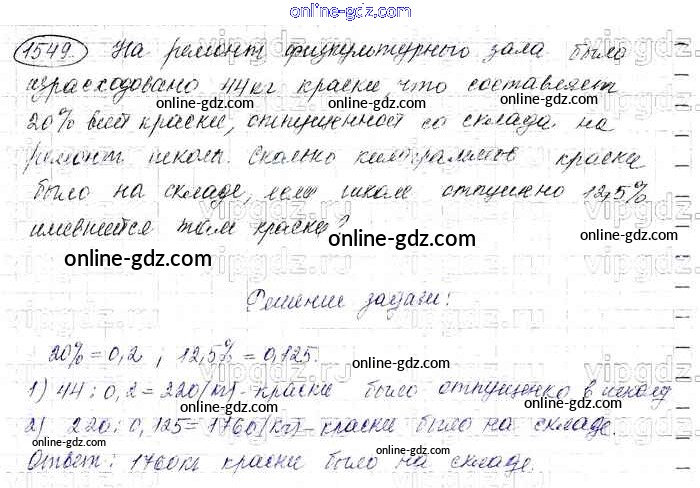 online-gdz.com
1549. На ремонт физкультурного зала было
израсходовано 44 кг краски, что составляет
online-gdz.com online-gdz.com online-gdz.com
20% всей краски, отпущенной со склада на
ремонт школы. Сколько килограммов краски
online-gdz.com online-gdz.com
было на складе, если школе отпущено 12,5%
имевшейся там краски?
online-gdz.com online-gdz.com
vipgdz.ru vipgdz.ru
Решение задачи:
20% = 0,2 ; 12,5% = 0,125.
online-gdz.com
1) 44 : 0,2 = 220 (кг) - краски было отпущенно в школу
online-gdz.com
2) 220 : 0,125 = 1760 (кг) - краски было на складе.
online-gdz.com online-gdz.com
Ответ: 1760 кг краски было на складе.
online-gdz.com